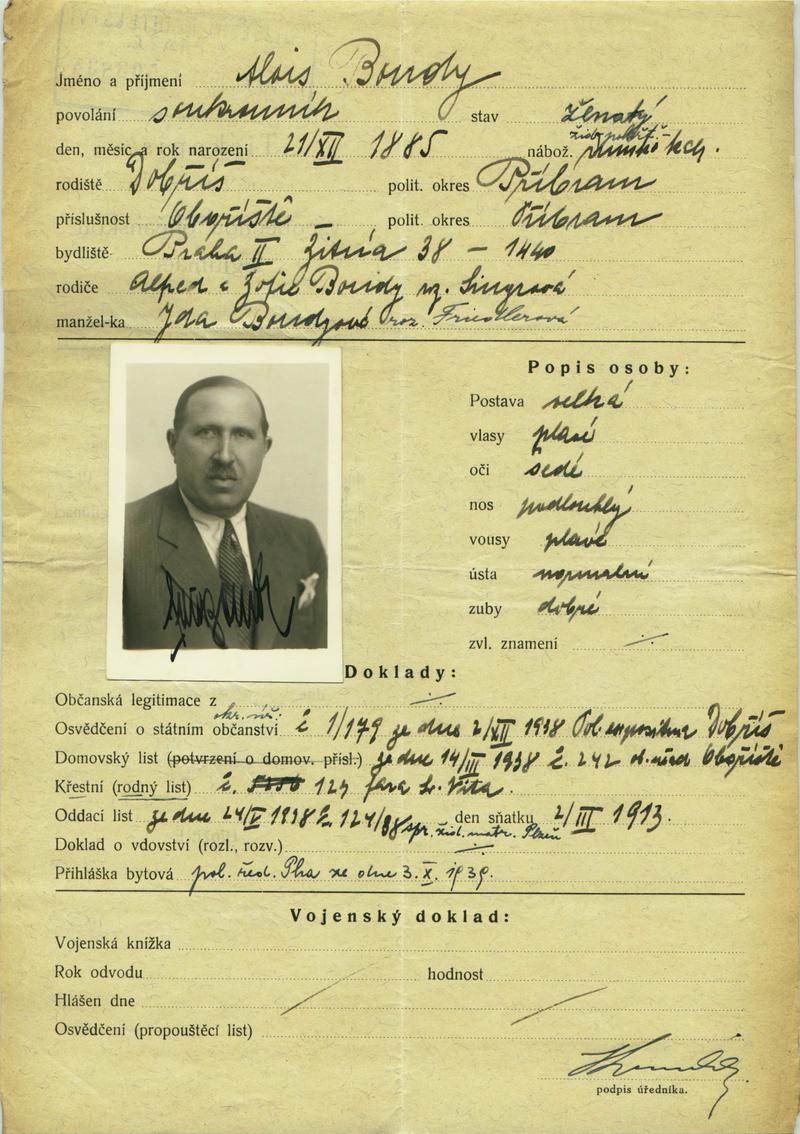 Jméno a příjmení Alois Bondy
povolání soukromník stav ženatý
den, měsíc a rok narození 21/XII 1885 nábož. římsko kch.
rodiště Dobříš polit. okres Příbram
příslušnost Obořiště — polit. okres Příbram
bydliště Praha II Žitná 38 – 1440
rodiče Alfred a Žofie Bondy roz. Singrová
manžel-ka Ida Bondyová roz. Friedlerová
Popis osoby:
Postava velká
vlasy plavé
oči šedé
nos podlouhlý
vousy plavé
ústa normalní
zuby dobré
zvl. znamení ·/·
Doklady:
Občanská legitimace z ·/·
Osvědčení o státním občanství č 1/179 ze dne 2/XII 1938 Pol. expositura Dobříš
Domovský list (potvrzení o domov. přísl.) ze dne 14/III 1938 č. 242 Obořiště
Křestní (rodný list) č. 127 fara Sv. Víta.
Oddací list ze dne 24/V 1938 č. 124/88 spr. žid. matr. Plzeň den sňatku 2/III 1913.
Doklad o vdovství (rozl., rozv.) ·/·
Přihláška bytová pol. řed. Pha ze dne 3. X. 1939.
Vojenský doklad:
Vojenská knížka
Rok odvodu hodnost
Hlášen dne
Osvědčení (propouštěcí list)
podpis úředníka.